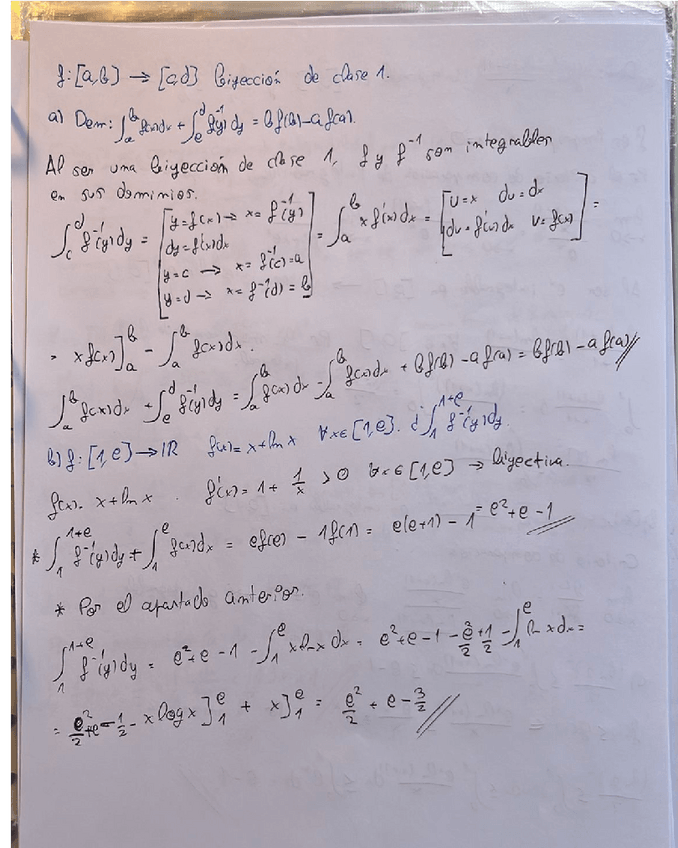 f:[a,b] → [c,d] biyección de clase 1.
a) Dem: ∫_a^b f(x)dx + ∫_c^d f^{-1}(y) dy = b f(b) - a f(a).
Al ser una biyección de clase 1, f y f^{-1} son integrables
en sus dominios.
∫_c^d f^{-1}(y) dy = [y=f(x) → x=f^{-1}(y) dy=f'(x)dx y=c → x=f^{-1}(c)=a y=d → x=f^{-1}(d)=b] = ∫_a^b x f'(x) dx = [u=x du=dx dv=f'(x) dx v=f(x)] =
= x f(x)]_a^b - ∫_a^b f(x) dx.
∫_a^b f(x) dx + ∫_c^d f^{-1}(y) dy = ∫_a^b f(x) dx - ∫_a^b f(x) dx + b f(b) - a f(a) = b f(b) - a f(a) //
b) f:[1,e] → IR f(x)= x+ln x ∀x∈[1,e]. ¿∫_1^{1+e} f^{-1}(y) dy.
f(x)= x+ln x. f'(x)= 1+ 1/x > 0 ∀x∈[1,e] → biyectiva.
* ∫_1^{1+e} f^{-1}(y) dy + ∫_1^e f(x) dx = e f(e) - 1 f(1) = e(e+1) - 1 = e^2+e-1 //
* Por el apartado anterior.
∫_1^{1+e} f^{-1}(y) dy = e^2+e-1 - ∫_1^e x+ln x dx = e^2+e-1 - e^2/2 + 1/2 - ∫_1^e ln x dx =
= e^2/2 + e - 1/2 - x log x]_1^e + x]_1^e = e^2/2 + e - 3/2 //